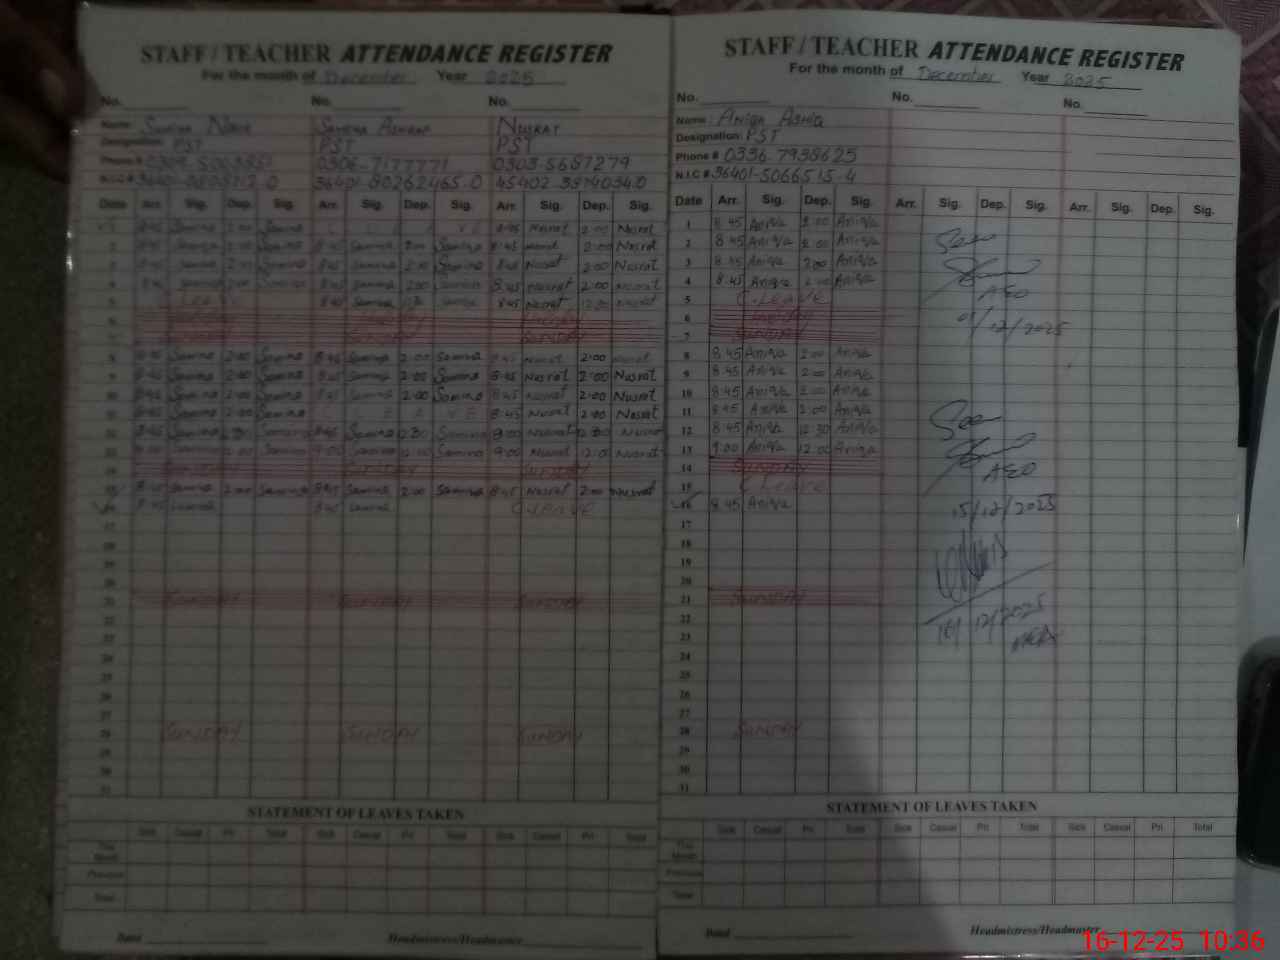 STAFF / TEACHER ATTENDANCE REGISTER
For the month of December Year 2025
No. No. No.
Name: Samina Ashraf Nusrat
Designation: PST PST PST
Phone # 0306-7177771 0303-5687279
N.I.C # 36401-80262465.0
Date Arr. Sig. Dep. Sig. Arr. Sig. Dep. Sig. Arr. Sig. Dep. Sig.
1 8:45 Samina 2:00 Samina 8:45 Nusrat 2:00 Nusrat
2 8:45 Samina 2:00 Samina 8:45 Samina 2:00 Samina 8:45 Nusrat 2:00 Nusrat
3 8:45 Samina 2:00 Samina 8:45 Samina 2:00 Samina 8:45 Nusrat 2:00 Nusrat
4 8:45 Samina 2:00 Samina 8:45 Samina 2:00 Samina 8:45 Nusrat 2:00 Nusrat
5 Leave 8:45 Samina Samina 8:45 Nusrat Nusrat
6
7 SUNDAY SUNDAY SUNDAY
8 8:45 Samina 2:00 Samina 8:45 Samina 2:00 Samina 8:45 Nusrat 2:00 Nusrat
9 8:45 Samina 2:00 Samina 8:45 Samina 2:00 Samina 8:45 Nusrat 2:00 Nusrat
10 8:45 Samina 2:00 Samina 8:45 Samina 2:00 Samina 8:45 Nusrat 2:00 Nusrat
11 8:45 Samina 2:00 Samina 8:45 Nusrat 2:00 Nusrat
12 8:45 Samina 12:30 Samina 8:45 Samina 12:30 Samina 9:00 Nusrat 12:30 Nusrat
13 9:00 Samina 12:00 Samina 9:00 Samina 12:00 Samina 9:00 Nusrat 12:00 Nusrat
14 SUNDAY SUNDAY SUNDAY
15 8:45 Samina 2:00 Samina 8:45 Samina 2:00 Samina 8:45 Nusrat 2:00 Nusrat
16 8:45 Samina 8:45 Samina C Leave
17
18
19
20
21 SUNDAY SUNDAY SUNDAY
22
23
24
25
26
27
28 SUNDAY SUNDAY SUNDAY
29
30
31
STATEMENT OF LEAVES TAKEN
Sick Casual Pri Total Sick Casual Pri Total Sick Casual Pri Total
This Month
Previous
Total
Dated Headmistress/Headmaster
STAFF / TEACHER ATTENDANCE REGISTER
For the month of December Year 2025
No. No. No.
Name: Aniqa Ashiq
Designation: PST
Phone # 0336-7938625
N.I.C # 36401-5066515-4
Date Arr. Sig. Dep. Sig. Arr. Sig. Dep. Sig. Arr. Sig. Dep. Sig.
1 8:45 Aniqa 2:00 Aniqa
2 8:45 Aniqa 2:00 Aniqa Seen
3 8:45 Aniqa 2:00 Aniqa
4 8:45 Aniqa 2:00 Aniqa AEO
5 C.Leave
6 /12/2025
7 SUNDAY
8 8:45 Aniqa 2:00 Aniqa
9 8:45 Aniqa 2:00 Aniqa
10 8:45 Aniqa 2:00 Aniqa
11 8:45 Aniqa 2:00 Aniqa Seen
12 8:45 Aniqa 12:30 Aniqa
13 9:00 Aniqa 12:00 Aniqa
14 SUNDAY AEO
15 C Leave
16 8:45 Aniqa 15/12/2025
17
18
19
20
21 SUNDAY
22 16/12/2025
23
24
25
26
27
28 SUNDAY
29
30
31
STATEMENT OF LEAVES TAKEN
Sick Casual Pri Total Sick Casual Pri Total Sick Casual Pri Total
This Month
Previous
Total
Dated Headmistress/Headmaster
16-12-25 10:36